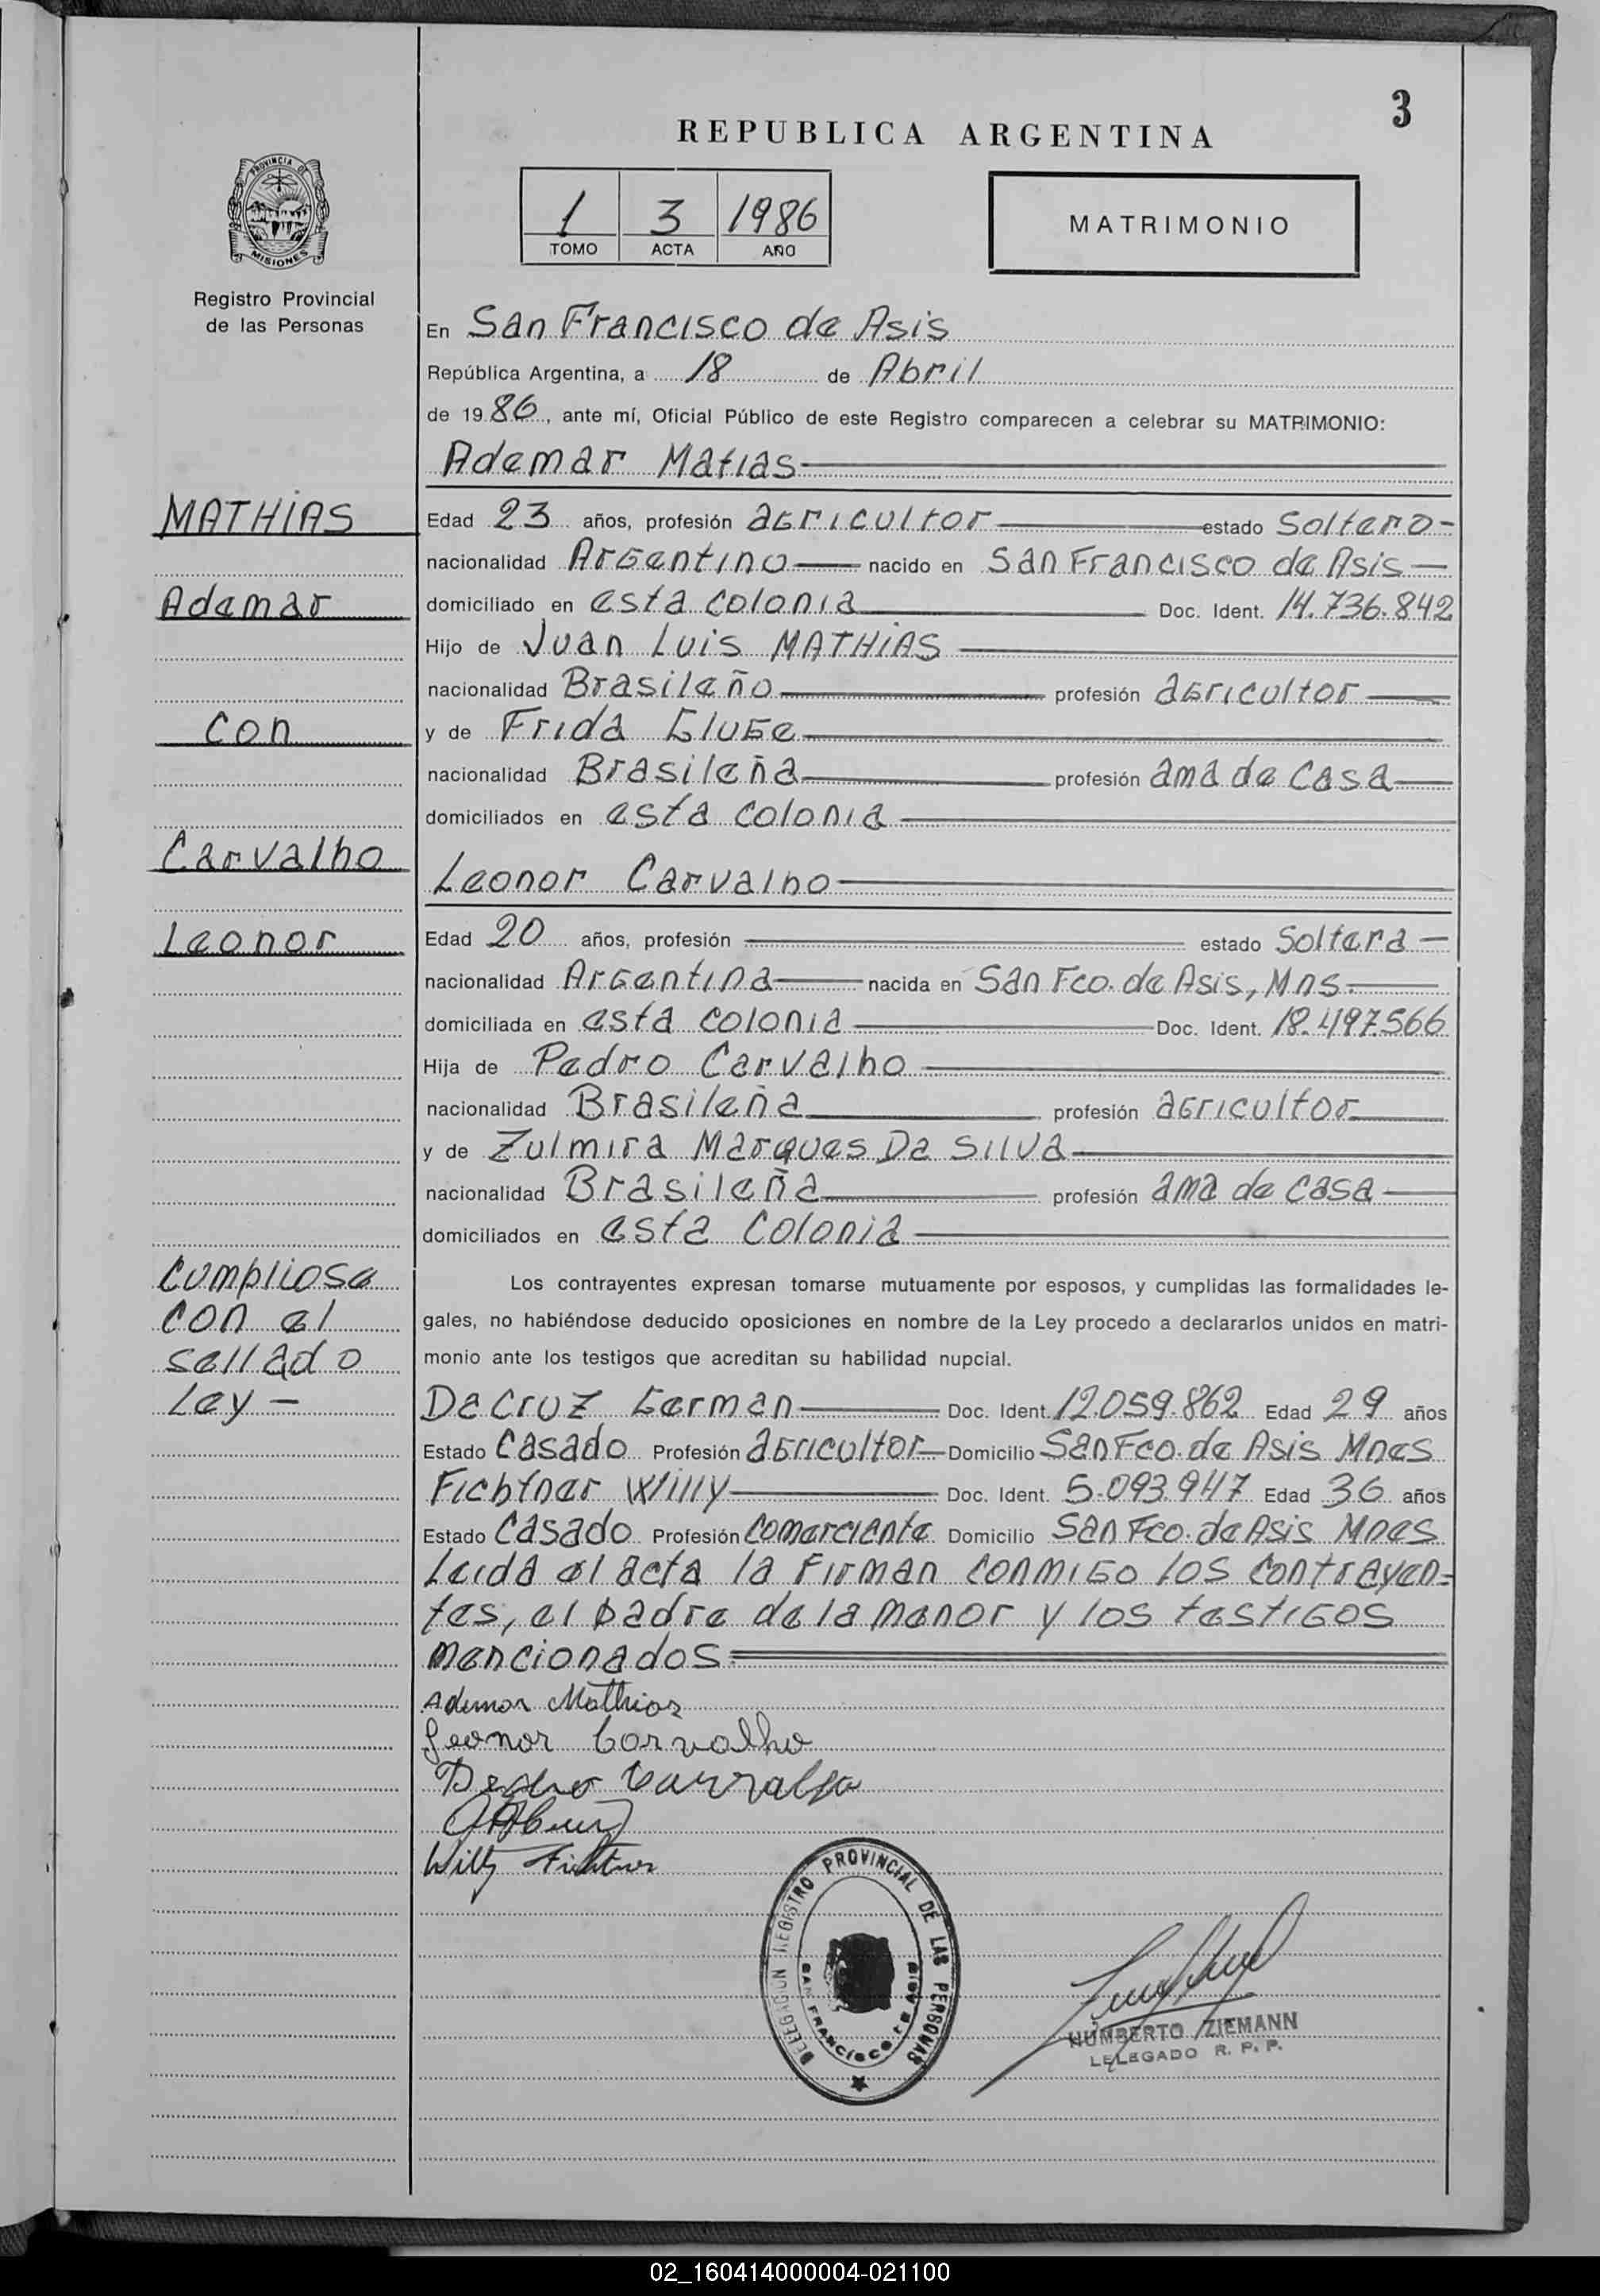 3
REPUBLICA ARGENTINA
PROVINCIA DE
MISIONES
Registro Provincial
de las Personas
1 3 1986
TOMO ACTA AÑO
MATRIMONIO
En San Francisco de Asis
República Argentina, a 18 de Abril
de 1986, ante mí, Oficial Público de este Registro comparecen a celebrar su MATRIMONIO:
Ademar Matias
MATHIAS
Edad 23 años, profesión agricultor estado Soltero-
nacionalidad Argentino nacido en San Francisco de Asis-
Ademar
domiciliado en esta colonia Doc. Ident. 14.736.842
Hijo de Juan Luis MATHIAS
nacionalidad Brasileño profesión agricultor
con
y de Frida Gluge
nacionalidad Brasileña profesión ama de casa
domiciliados en esta colonia
Carvalho
Leonor Carvalho
Leonor
Edad 20 años, profesión estado Soltera-
nacionalidad Argentina nacida en San Fco. de Asis, Mns.
domiciliada en esta colonia Doc. Ident. 18.497.566
Hija de Pedro Carvalho
nacionalidad Brasileña profesión agricultor
y de Zulmira Marques Da Silva
nacionalidad Brasileña profesión ama de casa
domiciliados en esta colonia
Cumpliose
con el
sellado
Ley -
Los contrayentes expresan tomarse mutuamente por esposos, y cumplidas las formalidades le-
gales, no habiéndose deducido oposiciones en nombre de la Ley procedo a declararlos unidos en matri-
monio ante los testigos que acreditan su habilidad nupcial.
Da Cruz German Doc. Ident. 12.059.862 Edad 29 años
Estado Casado Profesión agricultor Domicilio San Fco. de Asis Mnes
Fichtner Willy Doc. Ident. 5.093.947 Edad 36 años
Estado Casado Profesión comerciante Domicilio San Fco. de Asis Mnes
Leida el acta la Firman conmigo los contrayen=
tes, el padre de la menor y los testigos
mencionados=
Ademar Mathias
Leonor Carvalho
Pedro Carvalho
Willy Fichtner
DELEGACION REGISTRO PROVINCIAL DE LAS PERSONAS
SAN FRANCISCO DE ASIS
HUMBERTO ZIEMANN
DELEGADO R. P. P.
02_160414000004-021100